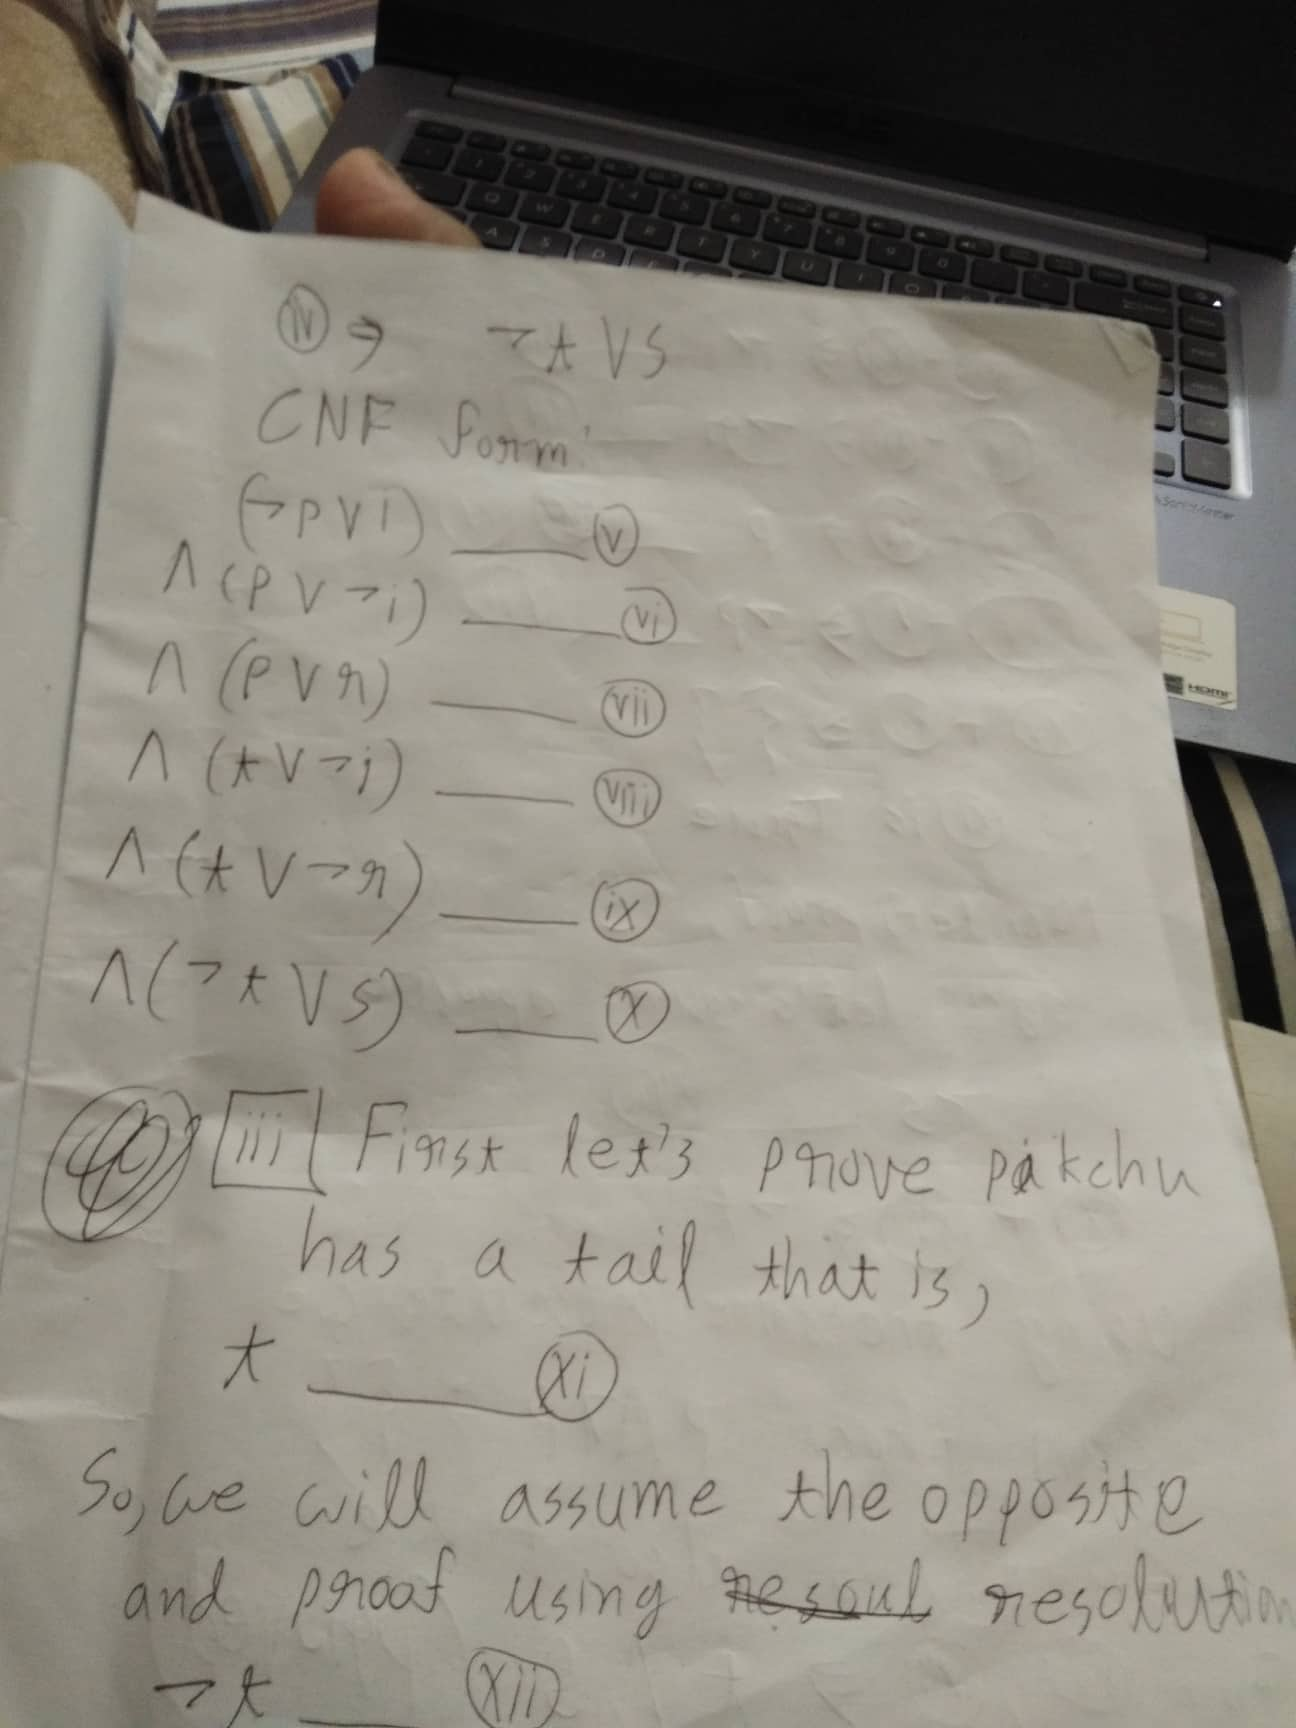 (iv) ⇒ ¬t ∨ s
CNF form:
(¬p ∨ i) ____ (v)
∧ (p ∨ ¬i) ____ (vi)
∧ (p ∨ r) ____ (vii)
∧ (t ∨ ¬i) ____ (viii)
∧ (t ∨ ¬r) ____ (ix)
∧ (¬t ∨ s) ____ (x)
iii First let's prove pikchu
has a tail that is,
t ____ (xi)
So, we will assume the opposite
and proof using resolution
¬t ____ (xii)
HDMI